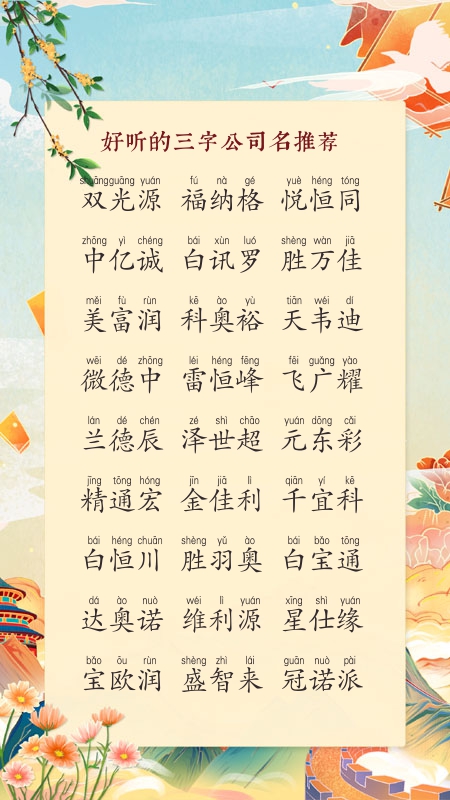 好听的三字公司名推荐
shuāngguāng yuán fú nà gé yuè héng tóng
双光源 福纳格 悦恒同
zhōng yì chéng bái xùn luó shèng wàn jiā
中亿诚 白讯罗 胜万佳
měi fù rùn kē ào yù tiān wéi dí
美富润 科奥裕 天韦迪
wēi dé zhōng léi héng fēng fēi guǎng yào
微德中 雷恒峰 飞广耀
lán dé chén zé shì chāo yuán dōng cǎi
兰德辰 泽世超 元东彩
jīng tōng hóng jīn jiā lì qiān yí kē
精通宏 金佳利 千宜科
bái héng chuān shèng yǔ ào bái bǎo tōng
白恒川 胜羽奥 白宝通
dá ào nuò wéi lì yuán xīng shì yuán
达奥诺 维利源 星仕缘
bǎo ōu rùn shèng zhì lái guān nuò pài
宝欧润 盛智来 冠诺派